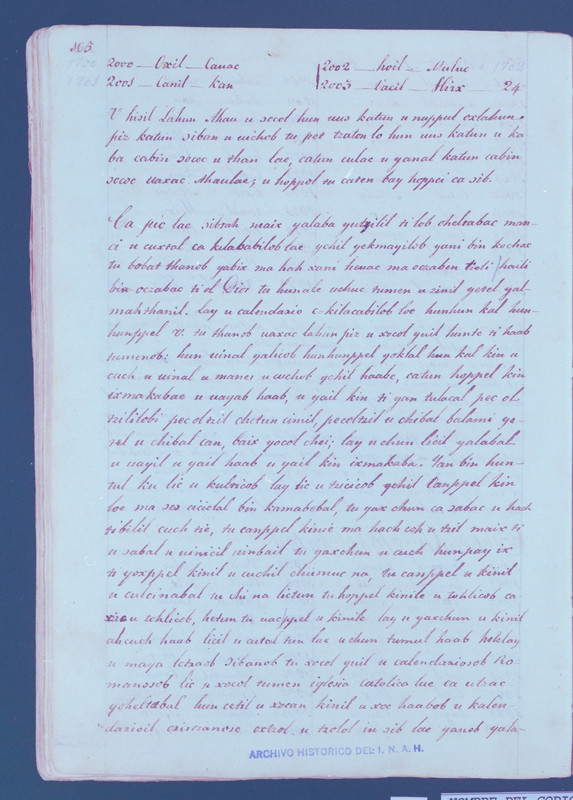 165
2000 — Oxil — Cauac 2002 — hoil — Muluc
2001 — Canil — Kan 2003 — Uacil — Hiix — 24
V hisil Lahun Ahau u xocol hun uuo katun u nuppul oxlahun
piz katun siban u uichob tu pet tzaton lo hun uuo katun u ka
ba cabin sococ u than lae, catun culac u yanal katun cabin
sococ uaxac Ahaulae; u hoppol tu caten bay hoppci ca sib.
Ca pic lae sibnah maix yalaba ti lob oheltabac man-
ci u cuxtal ca kilababilob lae ychil yekmayilob yani bin kuchac
tu bobat thanob yabix ma hah xani heuac ma oczaben haili
bin oczabac ti ol Dios tu hunale uchuc tumen u zinil yetel yal-
mahthanil. lay u calendario c-kilacabilob loe hunhun kal hun-
hunppel V. tu thanob uaxac lahun piz u xocol yuil hunte ti haab
tumenobi: hun uinal yalicob hunhunppel yoklal hun kal kin u
cuch u uinal u manes u cuchob ychil haabe, catun hoppol kin
ixmakabae u uayab haab, u yail kin ti yan tulacal pec ol
tzililobi pec otzil chetun cimil, pecotzil u chibal balami ye-
tel u chibal can, baix yocol chei; lay u chun licil yalabal
u uayil u yail haab u yail kin ixmakaba. Yan bin hun-
tul ku lic u kulticob lay lic u tzicicob ychil Canppel kin
loe ma ses cicictal bin kamabebal, tu yax chun ca sabac u hach
tibilil cuch tie, tu canppel kinie ma hach uch u tzil maix ti
u sabal u uinicil uinbail tu yaxchun u cuch hunpay ix
ti yoxppel kinil u cuchil chumuc na, tu canppel u kinil
u culcinabal tu chi na lictun tu hoppol kinile u tohlicob ca
xic u tohlicob, hetun tu uacppel u kinile lay u yaxchun u kinil
ahcuch haab licil u cutal tun lae uchun tumul haab helelay
u maya letraob sibanob tu xocol yuil u calendariosob Ro-
manosob lic u xocol tumen iglesia catolica lae ca utzac
yoheltabal hun cetil u xocan kinil u xoc haabob u kalen
darioil u tzolol in sib lae yaneb yala-
ARCHIVO HISTORICO DEL I. N. A. H.